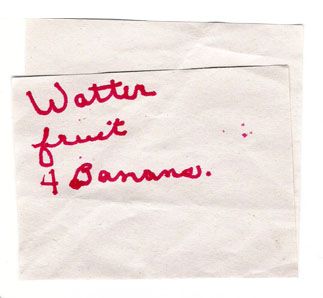 Watter
fruit
4 Banana.